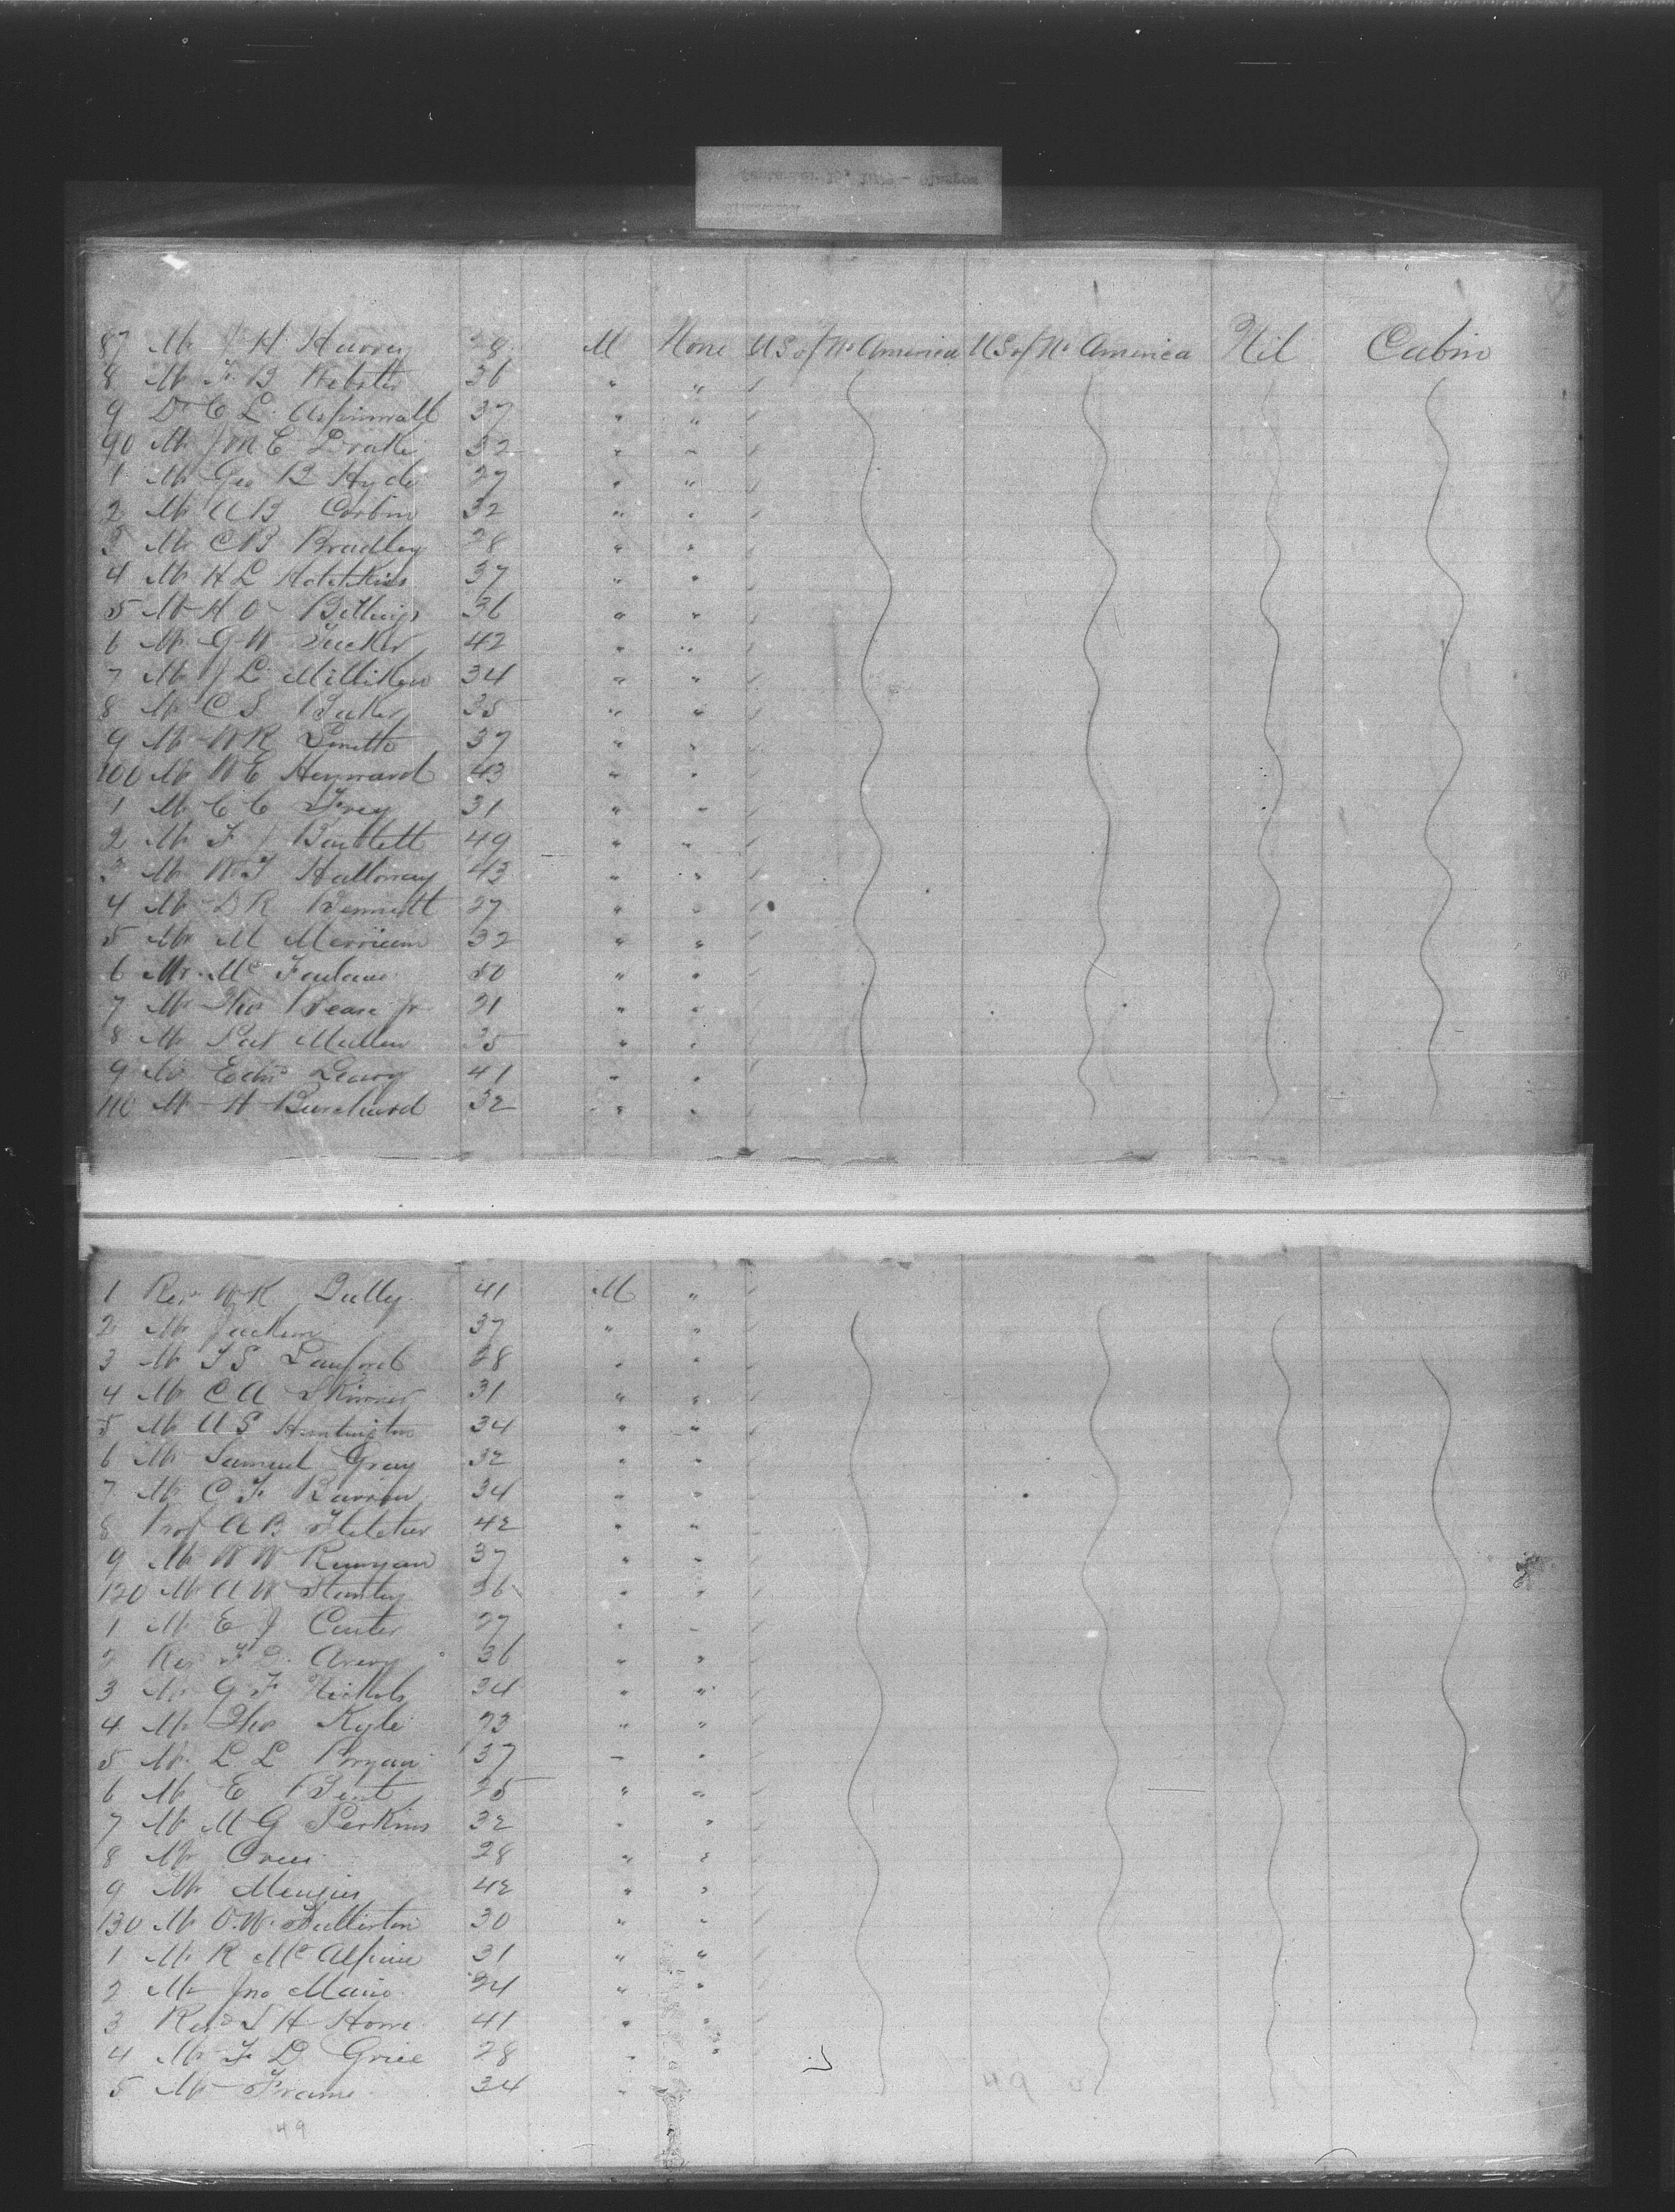 87 Mr J H Harvey 28 M None U S of No America U S of No America Nil Cabin
8 Mr F B Webster 36 " " "
9 Dr C L Aspinwall 37 " " "
90 Mr J M C Drake 32 " " "
1 Mr Geo B Hyde 27 " " "
2 Mr A B Corbin 32 " " "
3 Mr C B Bradley 28 " " "
4 Mr H L Hotchkiss 37 " " "
5 Mr H O Billings 36 " " "
6 Mr G W Tucker 42 " " "
7 Mr J L Milliken 34 " " "
8 Mr C S Baker 35 " " "
9 Mr W R Smith 37 " " "
100 Mr W E Heyward 43 " " "
1 Mr C C Frey 31 " " "
2 Mr F J Bartlett 49 " " "
3 Mr W T Halloway 43 " " "
4 Mr D R Bennett 27 " " "
5 Mr M Merriam 32 " " "
6 Mr Mc Farlane 50 " " "
7 Mr Thos Pease Jr 21 " " "
8 Mr Pat Mullen 35 " " "
9 Mr Edw Leary 41 " " "
110 Mr H Burchard 32 " " "
1 Rev W K 41 M " "
2 Mr Jackson 37 " " "
3 Mr T S Sanford 28 " " "
4 Mr C A Skinner 31 " " "
5 Mr A S Huntington 34 " " "
6 Mr Samuel Gray 32 " " "
7 Mr C F 34 " " "
8 Prof A B Fletcher 42 " " "
9 Mr W W Runyan 37 " " "
120 Mr A W Stanley 36 " " "
1 Mr E J Center 27 " " "
2 Rev Avery 36 " " "
3 Mr G F Nichols 34 " " "
4 Mr Thos Kyle 23 " " "
5 Mr L L Bryan 37 " " "
6 Mr E Bent 25 " " "
7 Mr M G Perkins 32 " " "
8 Mr 28 " " "
9 Mr Menzies 42 " " "
130 Mr O. W. Fullerton 30 " " "
1 Mr R Mc Alpine 31 " " "
2 Mr Jno 24 " " "
3 Revd S H Howe 41 " " "
4 Mr F D Grice 28 " "
5 Mr Frame 34 "
49